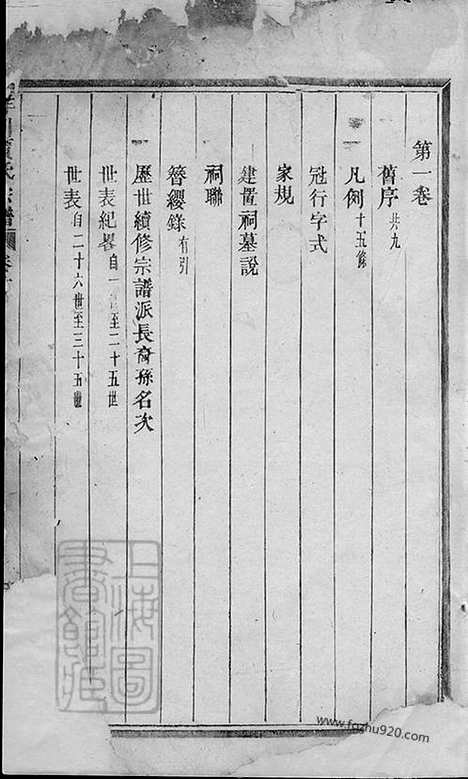 第一卷
舊序 共九
凡例 十五條
冠行字式
家規
建置祠墓說
祠聯
簪纓錄 有引
歷世續修宗譜派長裔孫名次
世表紀畧 自一世至二十五世
世表 自二十六世至三十五世
氏宗譜
上海圖書館藏
www.fozhu920.com